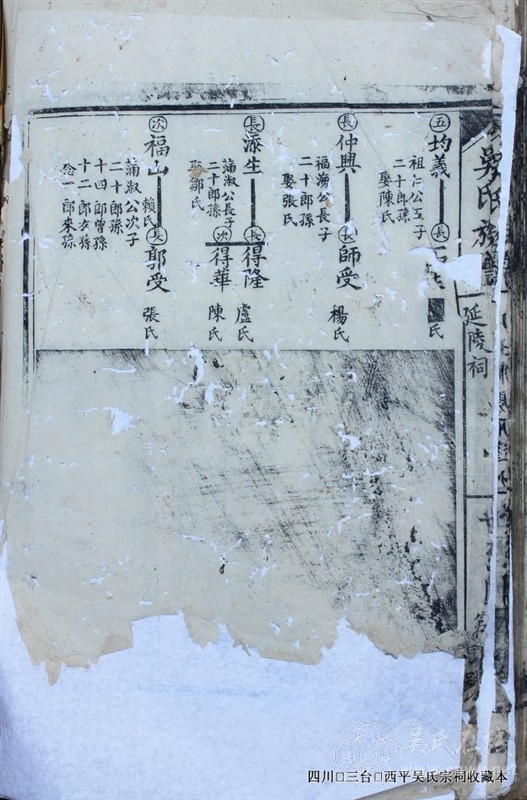 吳氏族譜
延陵祠
五 均義
祖仁公五子
二十郎孫
娶陳氏
長
氏
長 仲興
福海公長子
二十郎孫
娶張氏
長 師受
楊氏
長 添生
蒲淑公長子
二十郎孫
娶鄒氏
長 得隆
盧氏
次 得華
陳氏
次 福山
賴氏
蒲淑公次子
二十郎孫
十四郎曾孫
十二郎玄孫
念一郎來孫
長 郭受
張氏
吴氏在线
四川□三台□西平吴氏宗祠收藏本